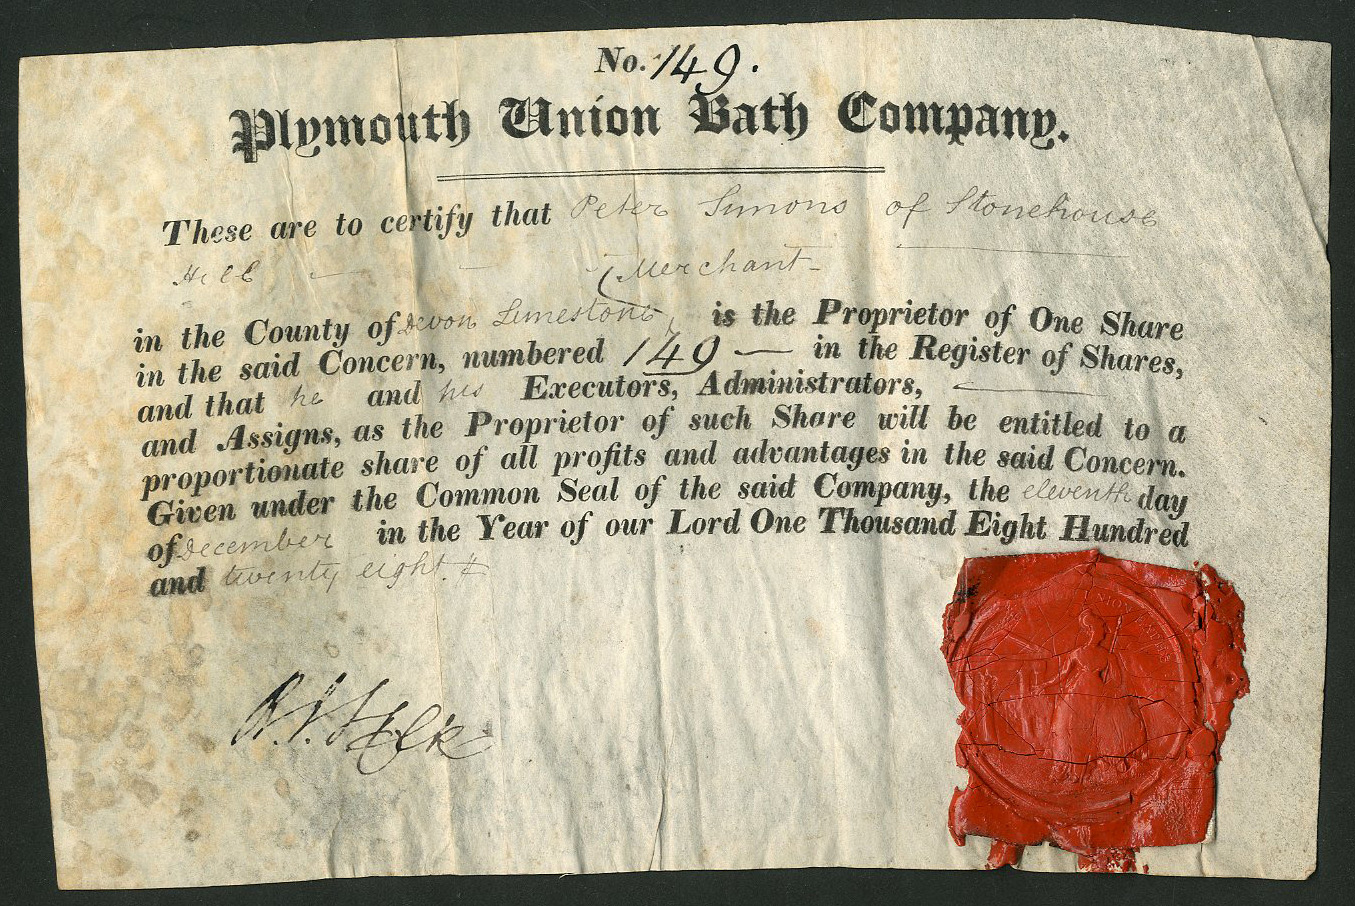 No. 149.
Plymouth Union Bath Company.
These are to certify that Peter Simons of Stonehouse
Hill Merchant
in the County of Devon Limestone is the Proprietor of One Share
in the said Concern, numbered 149 — in the Register of Shares,
and that he and his Executors, Administrators, —
and Assigns, as the Proprietor of such Share will be entitled to a
proportionate share of all profits and advantages in the said Concern.
Given under the Common Seal of the said Company, the eleventh day
of December in the Year of our Lord One Thousand Eight Hundred
and twenty eight.
UNION